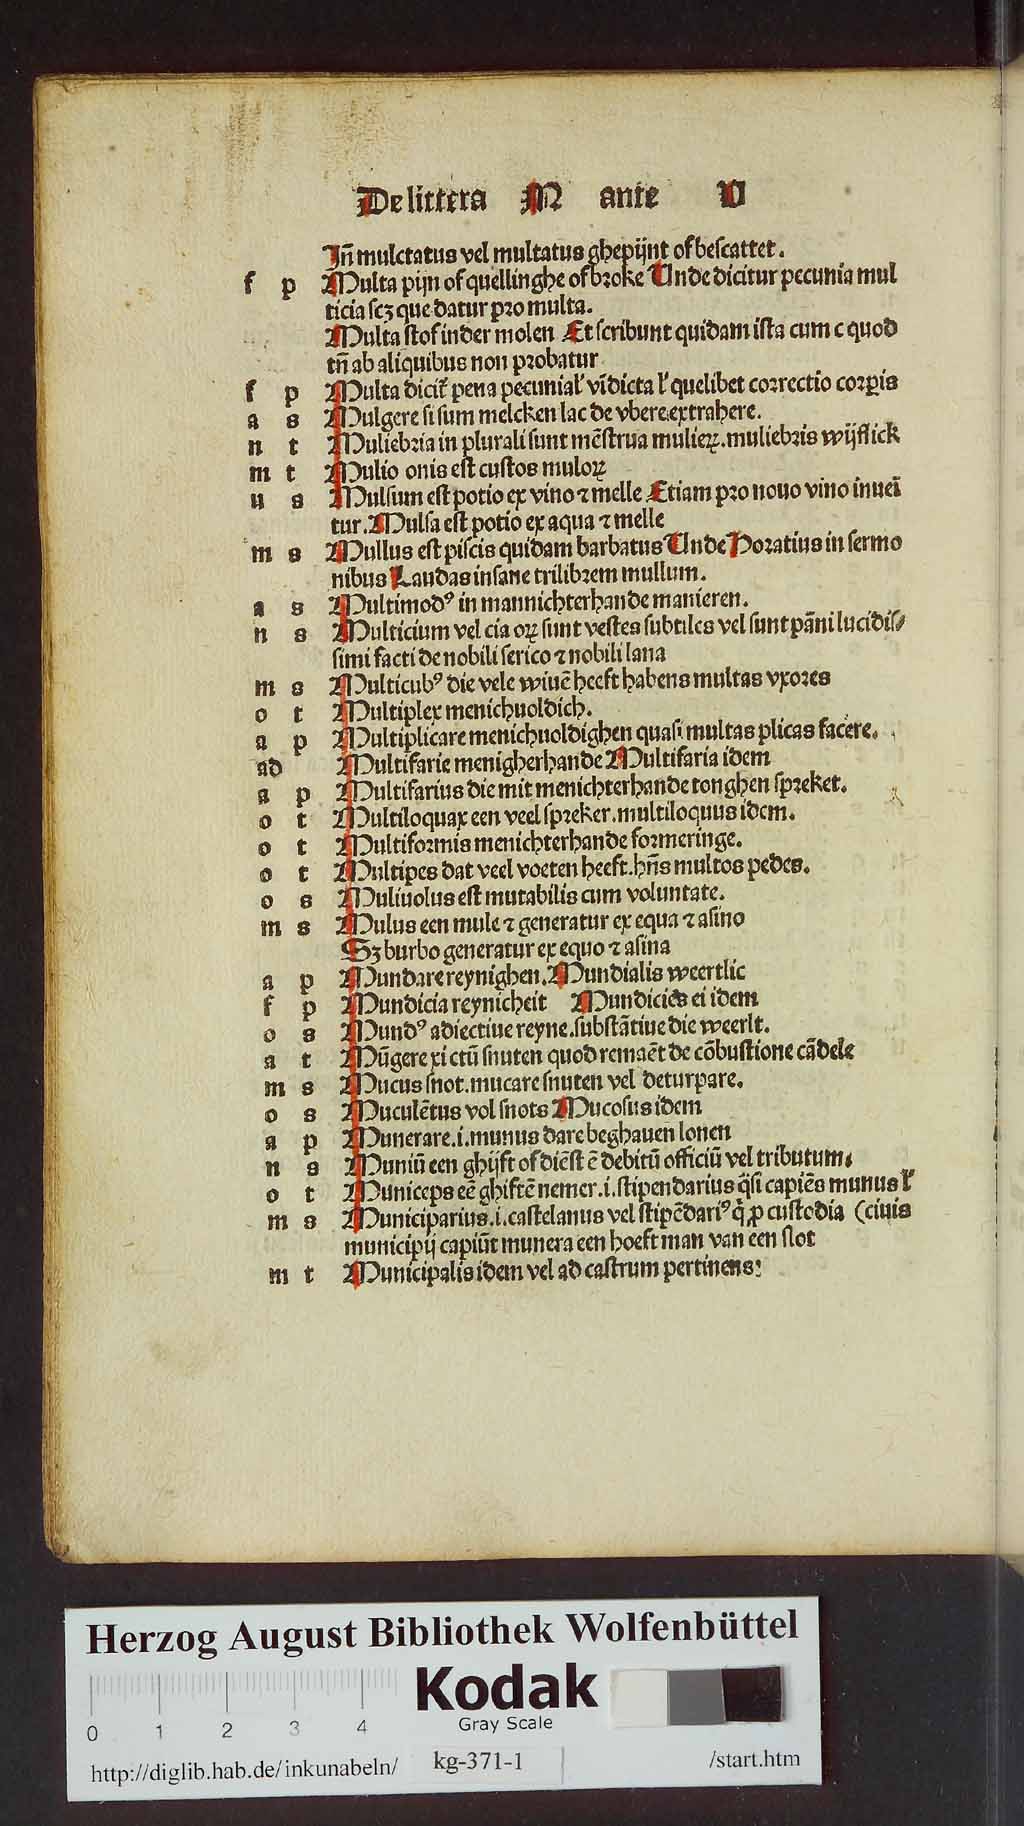 De littera M ante V
Jn̄ mulctatus vel multatus ghepijnt of bescattet.
f p Multa pijn of quellinghe of broke Vnde dicitur pecunia mul
ticia scꝫ que datur pro multa.
Multa stof in der molen Et scribunt quidam ista cum c quod
tn̄ ab aliquibus non probatur
f p Multa dicit᷑ pena pecunial᷑ vīdicta l᷑ quelibet correctio corꝑis
a s Mulgere si sum melcken lac de vbere extrahere.
n t Muliebria in plurali sunt mēstrua mulieꝝ. muliebris wijflick
m t Mulio onis est custos muloꝝ
n s Mulsum est potio ex vino ⁊ melle Etiam pro nouo vino inueī
tur. Mulsa est potio ex aqua ⁊ melle
m s Mullus est piscis quidam barbatus Vnde Horatius in sermo
nibus Laudas insane trilibrem mullum.
a s Multimodꝰ in mannichterhande manieren.
n s Multicium vel cia oꝝ sunt vestes subtiles vel sunt pāni lucidis⸗
simi facti de nobili serico ⁊ nobili lana
m s Multicubꝰ die vele wiuē heeft habens multas vxores
o t Multiplex menichuoldich.
a p Multiplicare menichuoldighen quasi multas plicas facere.
ad Multifarie menigherhande Multifaria idem
a p Multifarius die mit menichterhande tonghen spreket.
o t Multiloquax een veel spreker. multiloquus idem.
o t Multiformis menichterhande formeringe.
o t Multipes dat veel voeten heeft. hn̄s multos pedes.
o s Muliuolus est mutabilis cum voluntate.
m s Mulus een mule ⁊ generatur ex equa ⁊ asino
Sꝫ burbo generatur ex equo ⁊ asina
a p Mundare reynighen. Mundialis weertlic
f p Mundicia reynicheit Mundicies ei idem
o s Mundꝰ adiectiue reyne. substātiue die weerlt.
a t Mūgere xi ctū snuten quod remaēt de cōbustione cādele
m s Mucus snot. mucare snuten vel deturpare.
o s Muculētus vol snots Mucosus idem
a p Munerare .i. munus dare beghauen lonen
n s Muniū een ghijft of diēst ē debitū officiū vel tributum.
o t Municeps eē ghiftē nemer .i. stipendarius q̄si capiēs munus l᷑
m s Municiparius .i. castelanus vel stipēdariꝰ q̇ ꝓ custodia (ciuis
municipij capiūt munera een hoeft man van een slot
m t Municipalis idem vel ad castrum pertinens:
Herzog August Bibliothek Wolfenbüttel
Kodak
Gray Scale
0 1 2 3 4
http://diglib.hab.de/inkunabeln/ kg-371-1 /start.htm